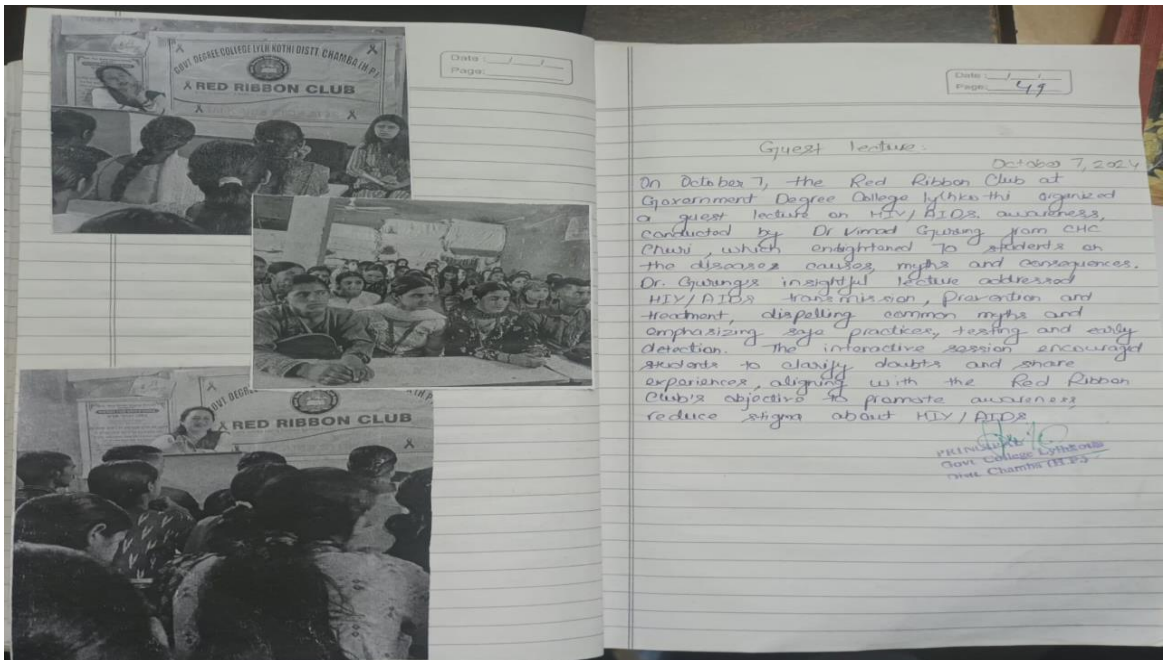 GOVT DEGREE COLLEGE LYLH KOTHI DISTT. CHAMBA (H.P.)
RED RIBBON CLUB
Date: __/__/__
Page:
GOVT DEGR
RED RIBBON CLUB
Date: __/__/__
Page: 49
Guest lecture.
October 7, 2024
On October 7, the Red Ribbon Club at
Government Degree College lylhkothi organized
a guest lecture on HIV/AIDS awareness,
conducted by Dr Vimad Gurung from CHC
Churi, which enlightened 70 students on
the diseases causes, myths and consequences.
Dr. Gurung's insightful lecture addressed
HIV/AIDS transmission, Prevention and
treatment, dispelling common myths and
emphasizing safe practices, testing and early
detection. The interactive session encouraged
students to clarify doubts and share
experiences, aligning with the Red Ribbon
Club's objective to promote awareness,
reduce stigma about HIV/AIDS.
PRINCIPAL
Govt College Lylhkothi
Distt. Chamba (H.P.)